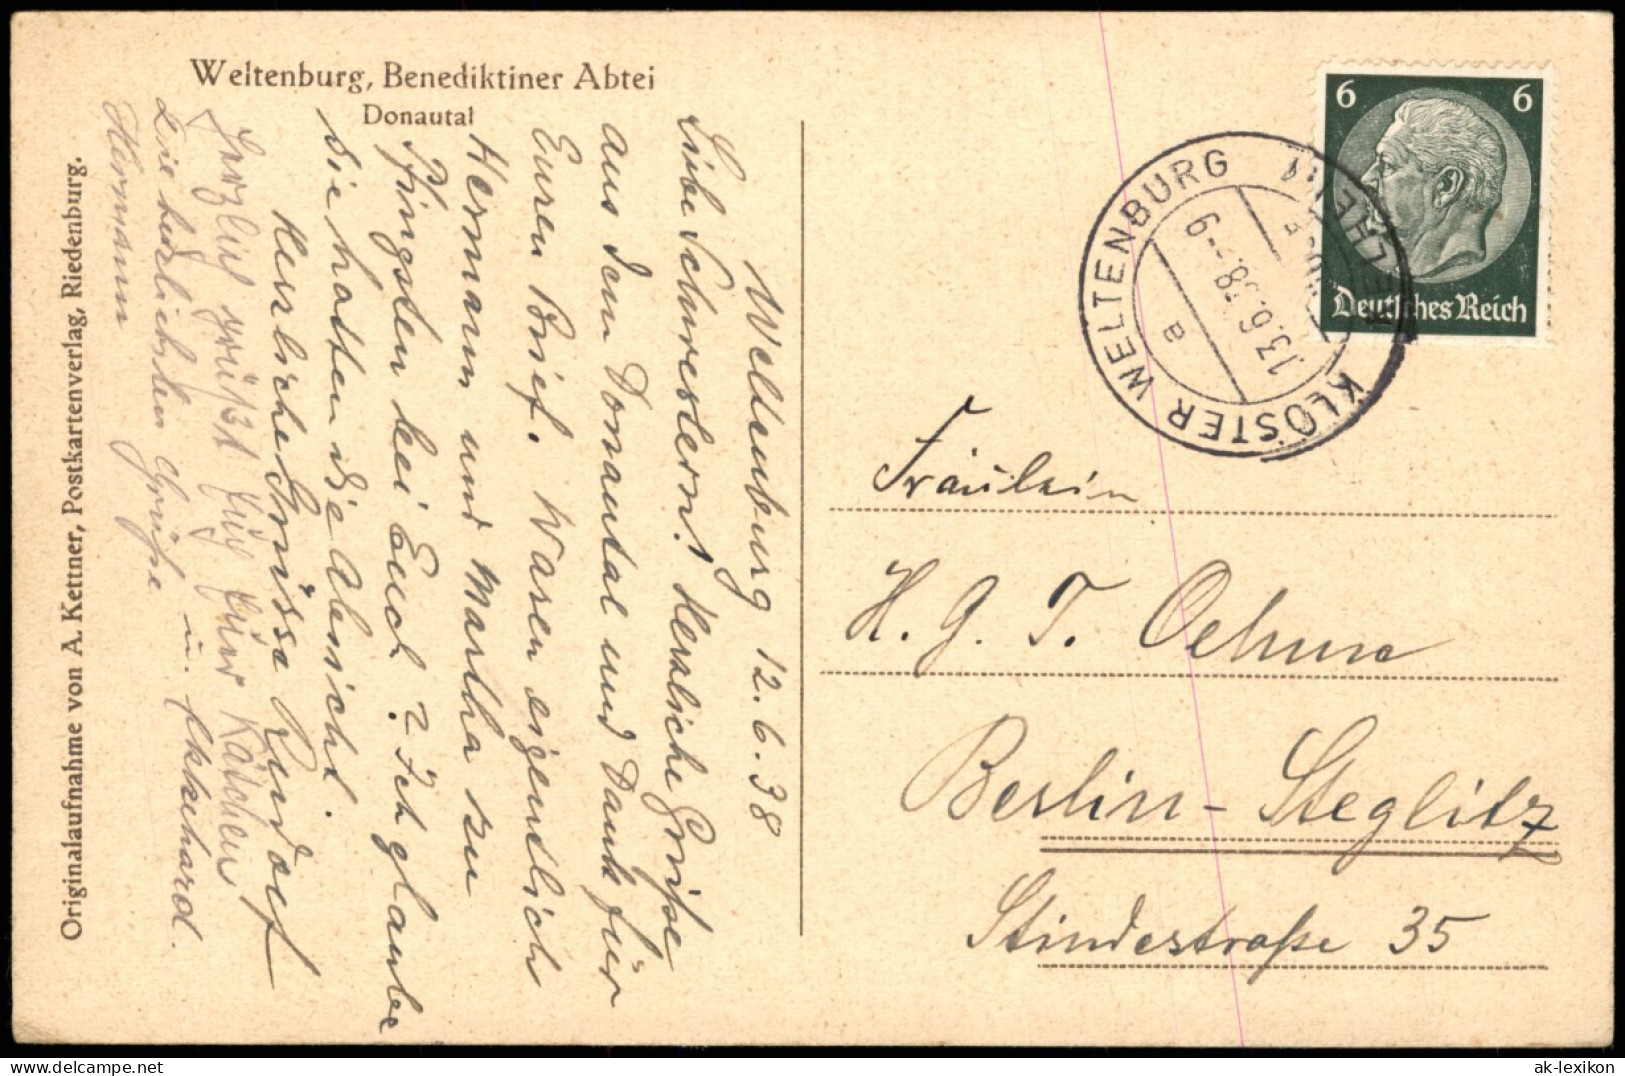 Weltenburg, Benediktiner Abtei
Donautal
Originalaufnahme von A. Kettner, Postkartenverlag, Riedenburg.
Weltenburg 12.6.38
Liebe Schwestern! Herzliche Grüße
aus dem Donautal und Dank für
Euren Brief. Waren eigentlich
Hermann und Martha zu
Pfingsten bei Euch? Ich glaube
sie hatten die Absicht.
Herzliche Grüsse Rudolf
Herzlich grüßt Euer Kätchen
Die herzlichsten Grüße u. Ekkehard.
Hermann
6 6
Deutsches Reich
KLOSTER WELTENBURG
13.6.38.-9
a
Fräulein
H. G. T. Oehme
Berlin-Steglitz
Stindestraße 35
ak-lexikon